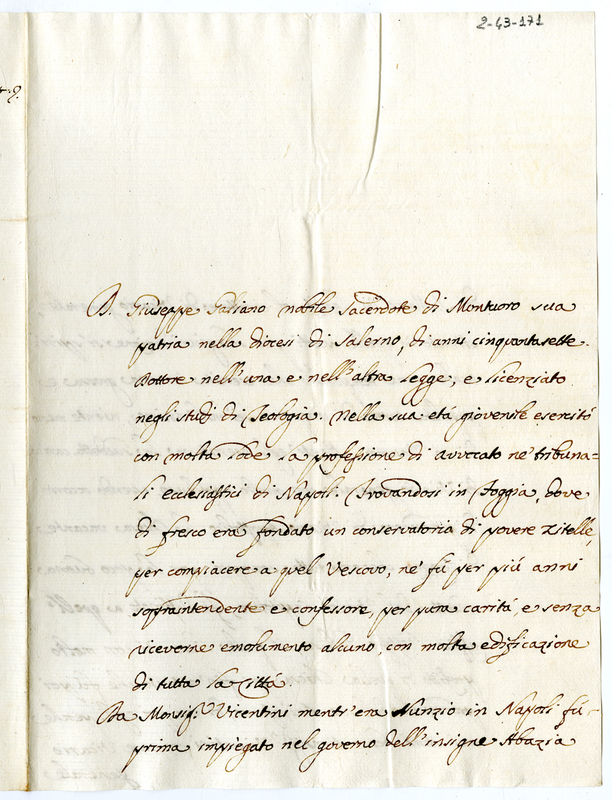 2-43-171
D. Giuseppe Galiano nobile sacerdote di Montuoro sua
patria nella diocesi di Salerno, di anni cinquantasette.
Dottore nell'una e nell'altra legge, e licenziato
negli studj di Teologia. Nella sua etá giovenile esercitó
con molta lode la professione di avvocato ne' tribuna=
li ecclesiastici di Napoli. Trovandosi in Foggia, dove
di fresco era fondato un conservatorio di povere zitelle,
per compiacere a quel Vescovo, ne fú per piú anni
sopraintendente e confessore, per pura caritá, e senza
riceverne emolumento alcuno, con molta edificazione
di tutta la Cittá.
Da Monsig.r Vicentini mentr'era Nunzio in Napoli fú
prima impiegato nel governo dell'insigne Abazia